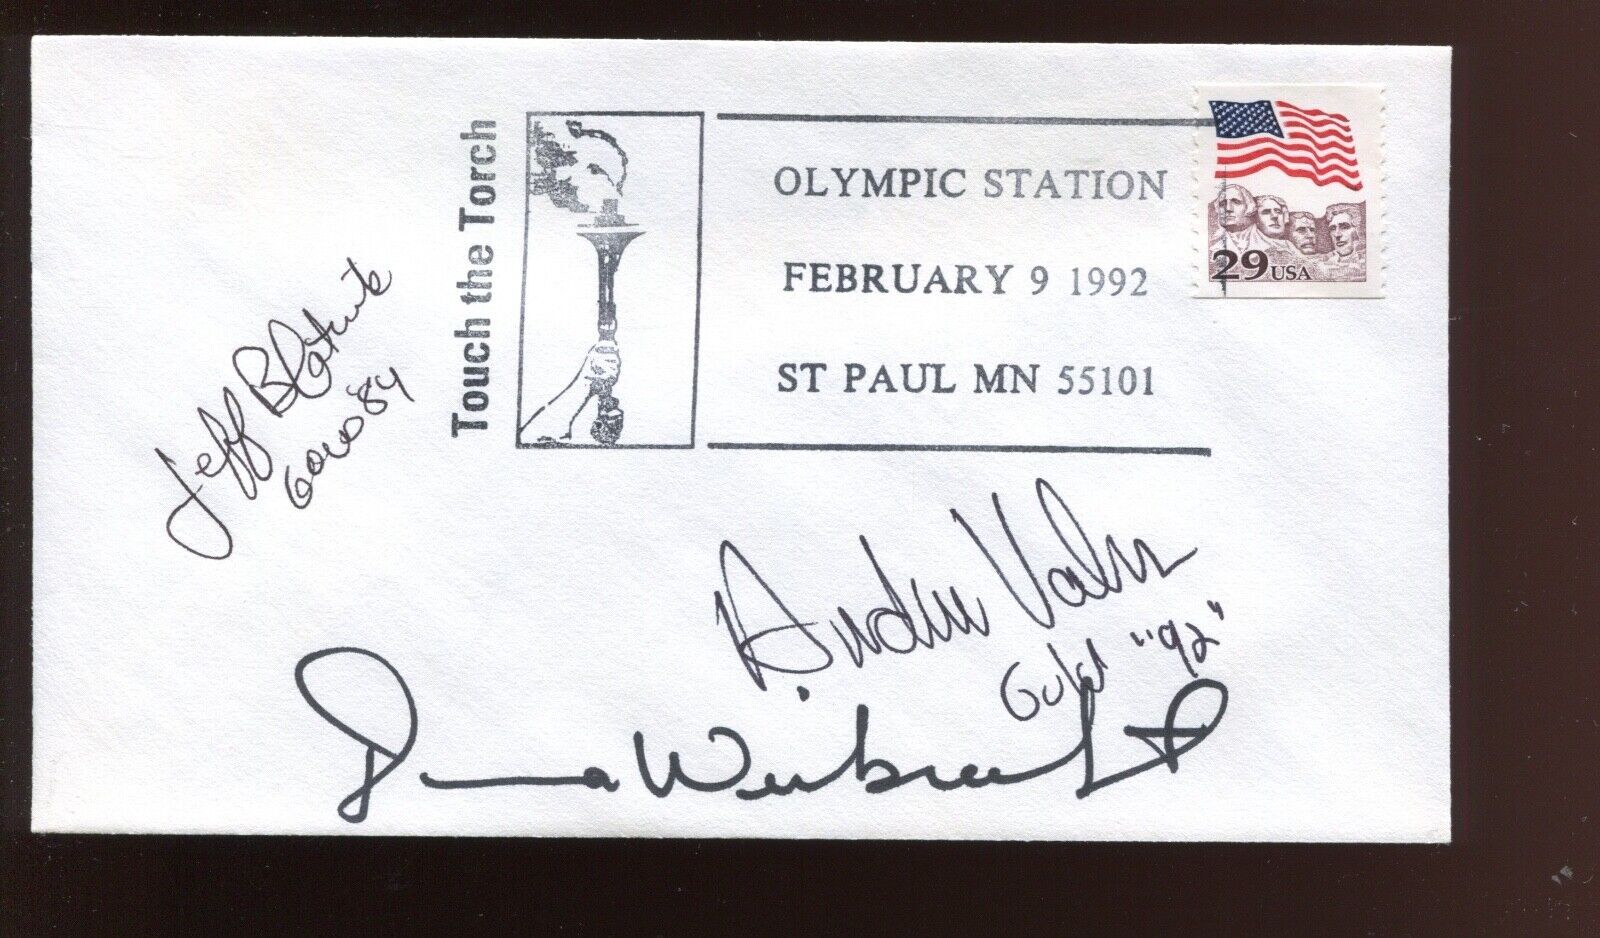 Touch the Torch
OLYMPIC STATION
FEBRUARY 9 1992
ST PAUL MN 55101
29 USA
Jeff Blatnick
Gold 84
Gold "92"